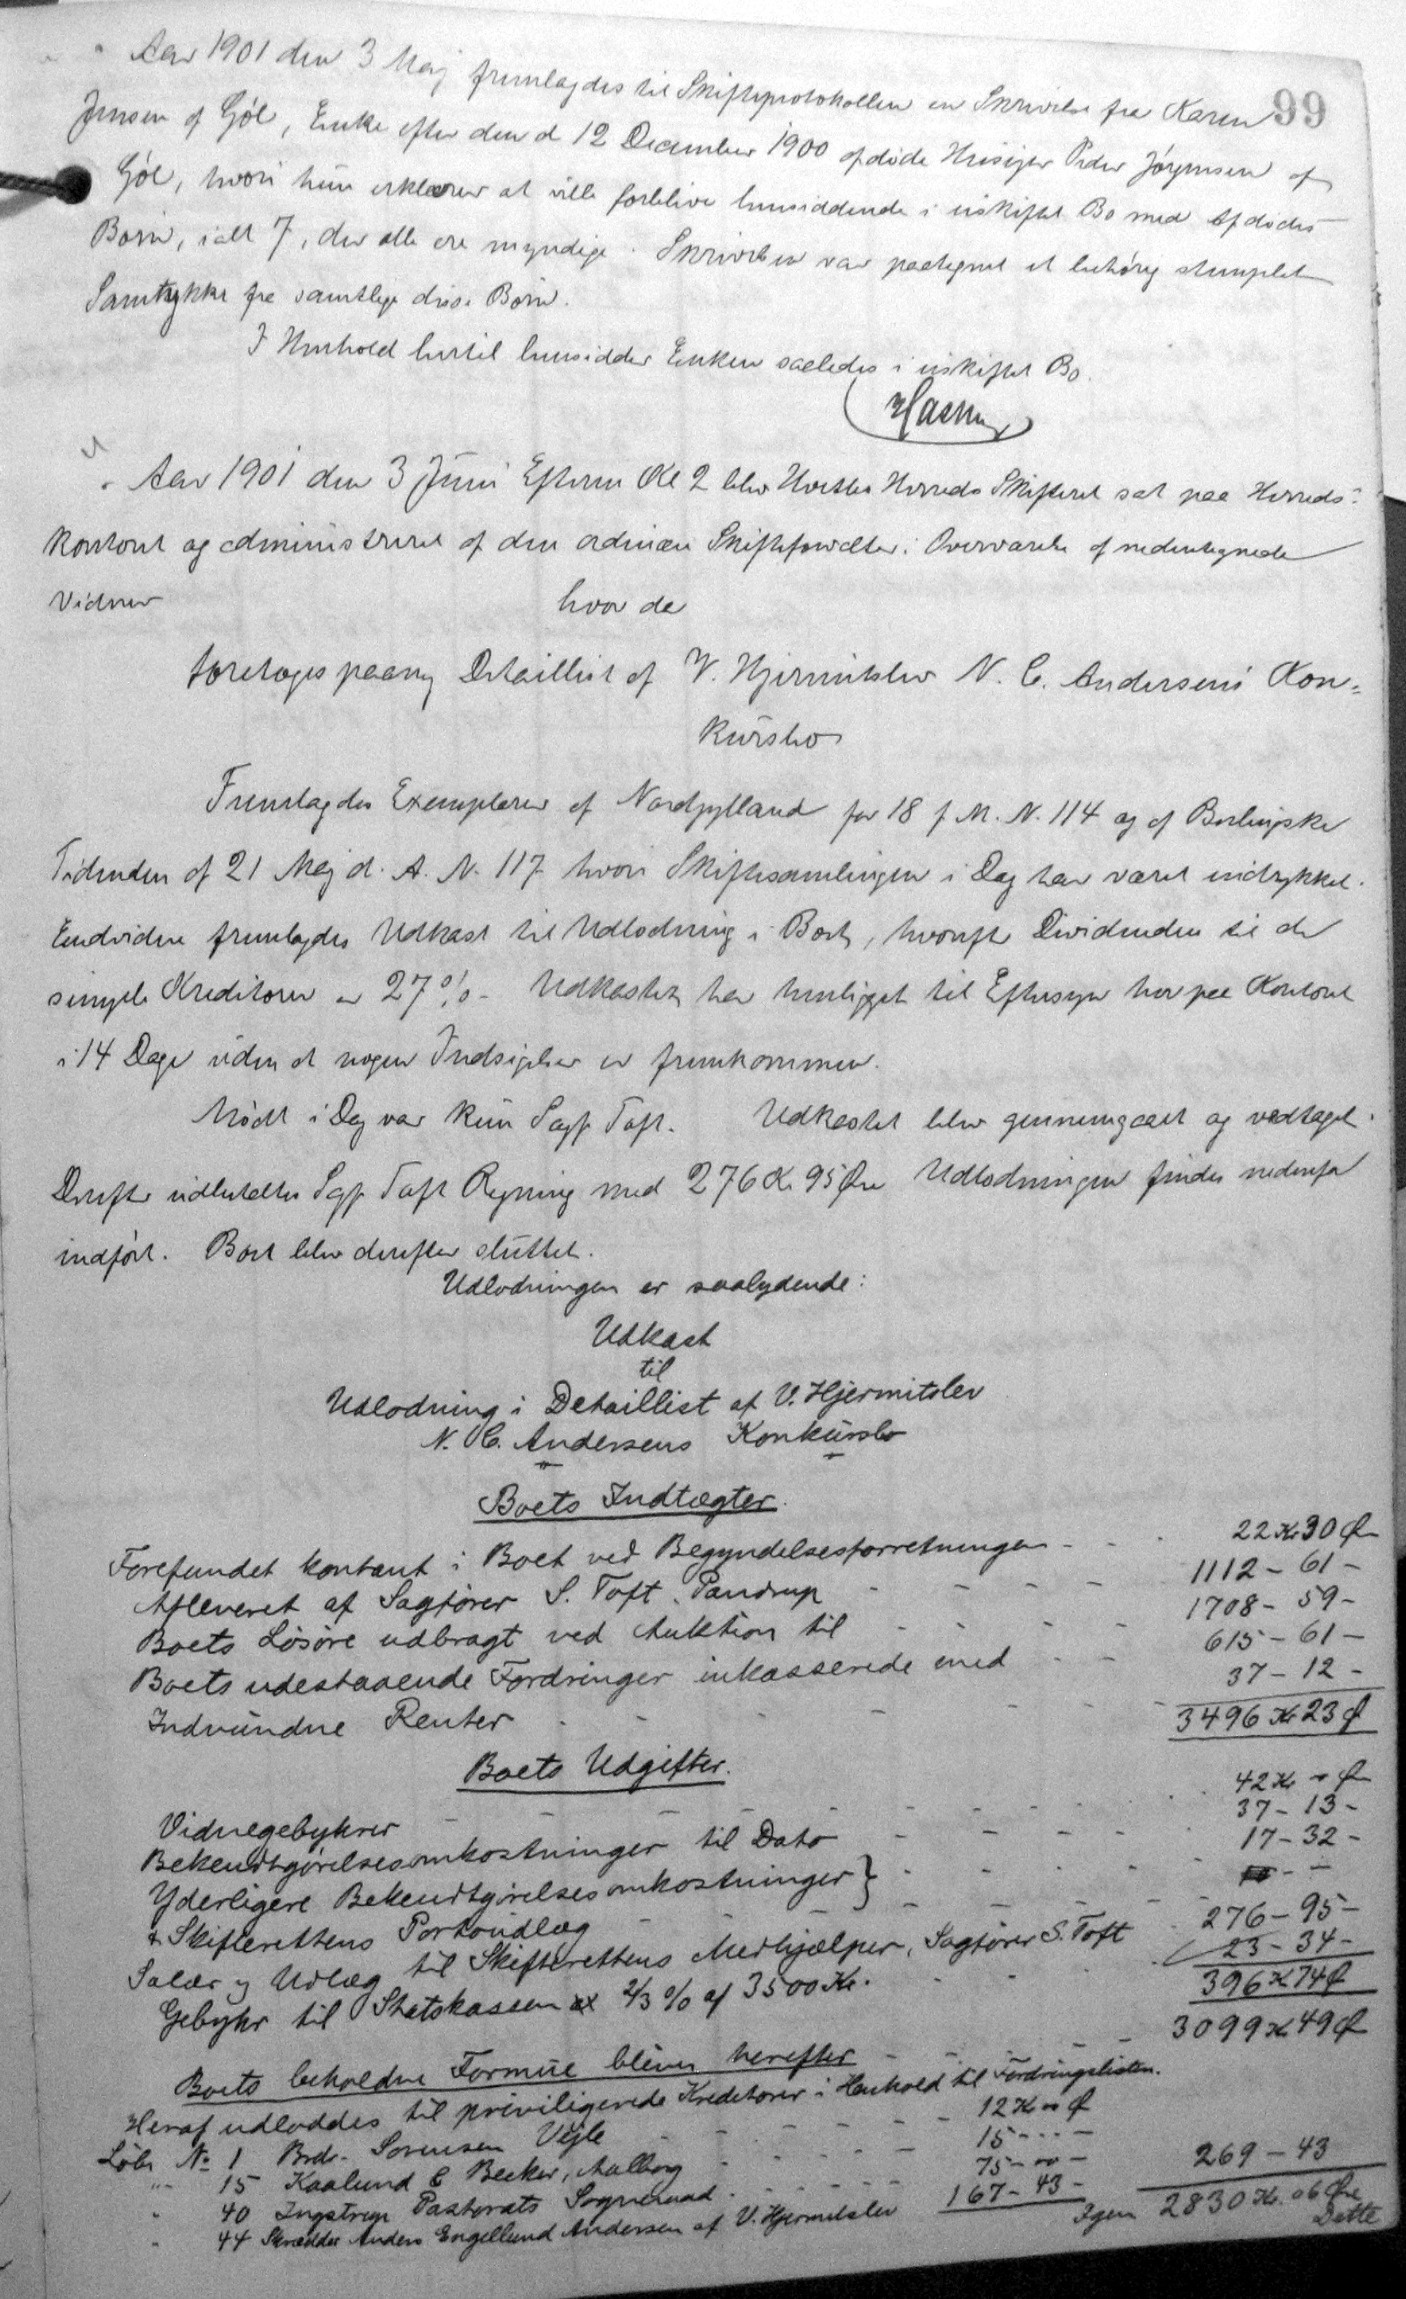 99
Aar 1901 den 3 Maj fremlagdes til Skifteprotokollen en Skrivelse fra Karen
Jensen af Gjøl, Enke efter den d 12 December 1900 afdøde Husejer Peder Jørgensen af
Gjøl, hvori hun erklærer at ville forblive hensiddende i uskiftet Bo med Afdødes
Børn, ialt 7, der alle ere myndige. Skrivelsen var paategnet et behørig stemplet
Samtykke fra samtlige disse Børn.
I Henhold hertil hensidder Enken saaledes i uskiftet Bo.
Aar 1901 den 3 Juni Efterm Kl 2 blev Hvetbo Herreds Skifteret sat paa Herreds-
kontoret og administreret af den ordinære Skifteforvalter i Overværelse af nedentegnede
Vidner hvor da
foretoges paany Detaillist af V. Hjermitslev N. C. Andersens Kon-
kursbo
Fremlagdes Exemplarer af Nordjylland for 18 f. M. N. 114 og af Berlingske
Tidenden af 21 Maj d. A. N. 117 hvori Skiftesamlingen i Dag har været indrykket.
Endvidere fremlagdes Udkast til Udlodning i Boet, hvorefter Dividenden til de
simple Kreditorer er 27 %. Udkastet har henligget til Eftersyn her paa Kontoret
i 14 Dage uden at nogen Indsigelser er fremkommen.
Mødt i Dag var kun Sagf. Toft. Udkastet blev gennemgaaet og vedtaget.
Derefter udbetaltes Sagf. Toft Regning med 276 Kr 95 Øre Udlodningen findes nedenfor
indført. Boet blev derefter sluttet.
Udlodningen er saalydende:
Udkast
til
Udlodning i Detaillist af V. Hjermitslev
N. C. Andersens Konkursbo
Boets Indtægter.
Forefundet kontant i Boet ved Begyndelsesforretningen - - 22 Kr 30 Ø
Afleveret af Sagfører S. Toft, Pandrup - - - - 1112 - 61 -
Boets Løsøre udbragt ved Auktion til - - - - 1708 - 59 -
Boets udestaaende Fordringer inkasserede med - - 615 - 61 -
Indvundne Renter - - - - - - 37 - 12 -
3496 Kr 23 Ø
Boets Udgifter.
Vidnegebyhrer - - - - - - 42 Kr " Ø
Bekendtgørelsesomkostninger til Dato - - - - 37 - 13 -
Yderligere Bekendtgørelsesomkostninger } - - - - 17 - 32 -
& Skifterettens Portoudlæg - - - - - -
Salær og Udlæg til Skifterettens Medhjælper, Sagfører S. Toft - 276 - 95 -
Gebyhr til Statskassen 2/3 % af 3500 Kr. - - - 23 - 34 -
396 Kr 74 Ø
Boets beholdne Formue bliver herefter - - - - 3099 Kr 49 Ø
Heraf udloddes til priviligerede Kreditorer i Henhold til Fordringslisten.
Løbe No 1 Brdr. Sørensen Vejle - - - - 12 Kr " Ø
" 15 Kaalund & Becker, Aalborg - - - - 15 - " -
" 40 Ingstrup Pastorats Sogneraad - - - - 75 - " -
" 44 Skrædder Anders Engellund Andersen af V. Hjermitslev 167 - 43 - 269 - 43
Igen 2830 Kr. 06 Øre
Dette